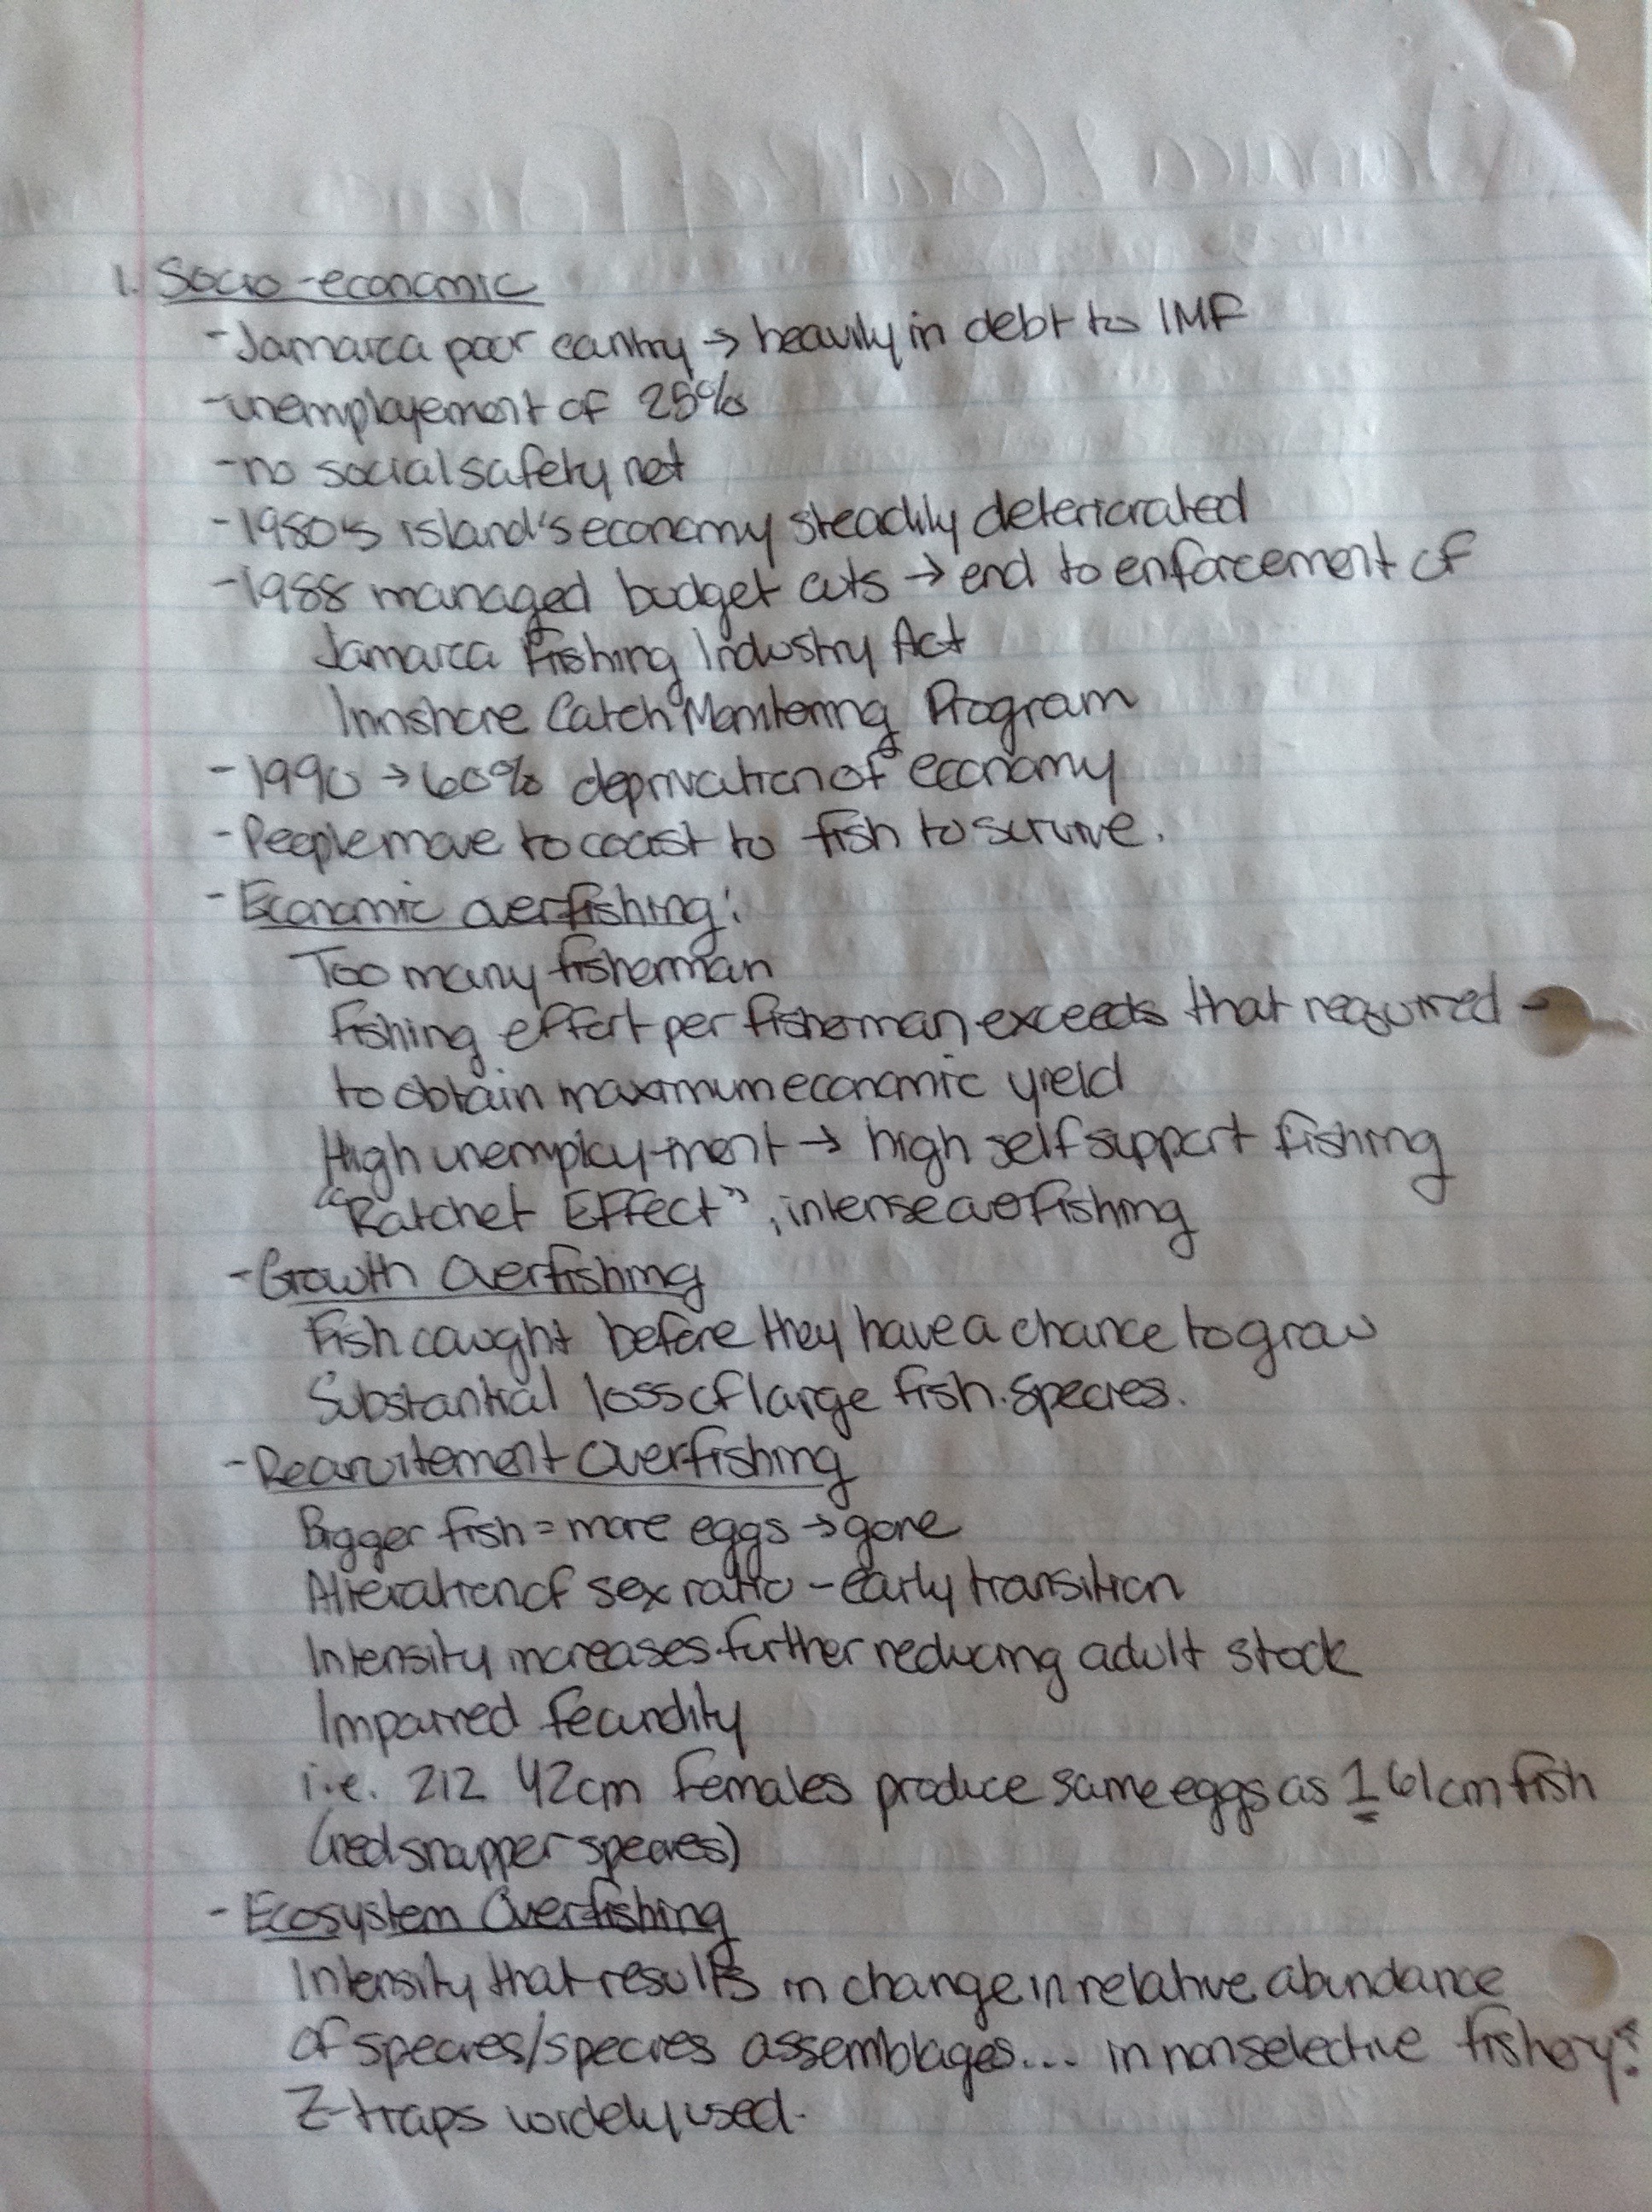 1. Socio-economic
- Jamaica poor country → heavily in debt to IMF
- unemployement of 25%
- no social safety net
- 1980's island's economy steadily deteriorated
- 1988 managed budget cuts → end to enforcement of
Jamaica Fishing Industry Act
Innshore Catch Monitoring Program
- 1990 → 60% deprivation of economy
- People move to coast to fish to survive.
- Economic overfishing:
Too many fisherman
Fishing effort per fisherman exceeds that required -
to obtain maximum economic yield
High unemploy-ment → high self support fishing
"Ratchet Effect", intense overfishing
- Growth Overfishing
Fish caught before they have a chance to grow
Substantial loss of large fish species.
- Recruitement Overfishing
Bigger fish = more eggs → gone
Alteration of sex ratio - early transition
Intensity increases further reducing adult stock
Impaired fecundity
i.e. 212 42cm females produce same eggs as 1 61cm fish
(red snapper species)
- Ecosystem Overfishing
Intensity that results in change in relative abundance
of species/species assemblages... in nonselective fishery?
Z-traps widely used.